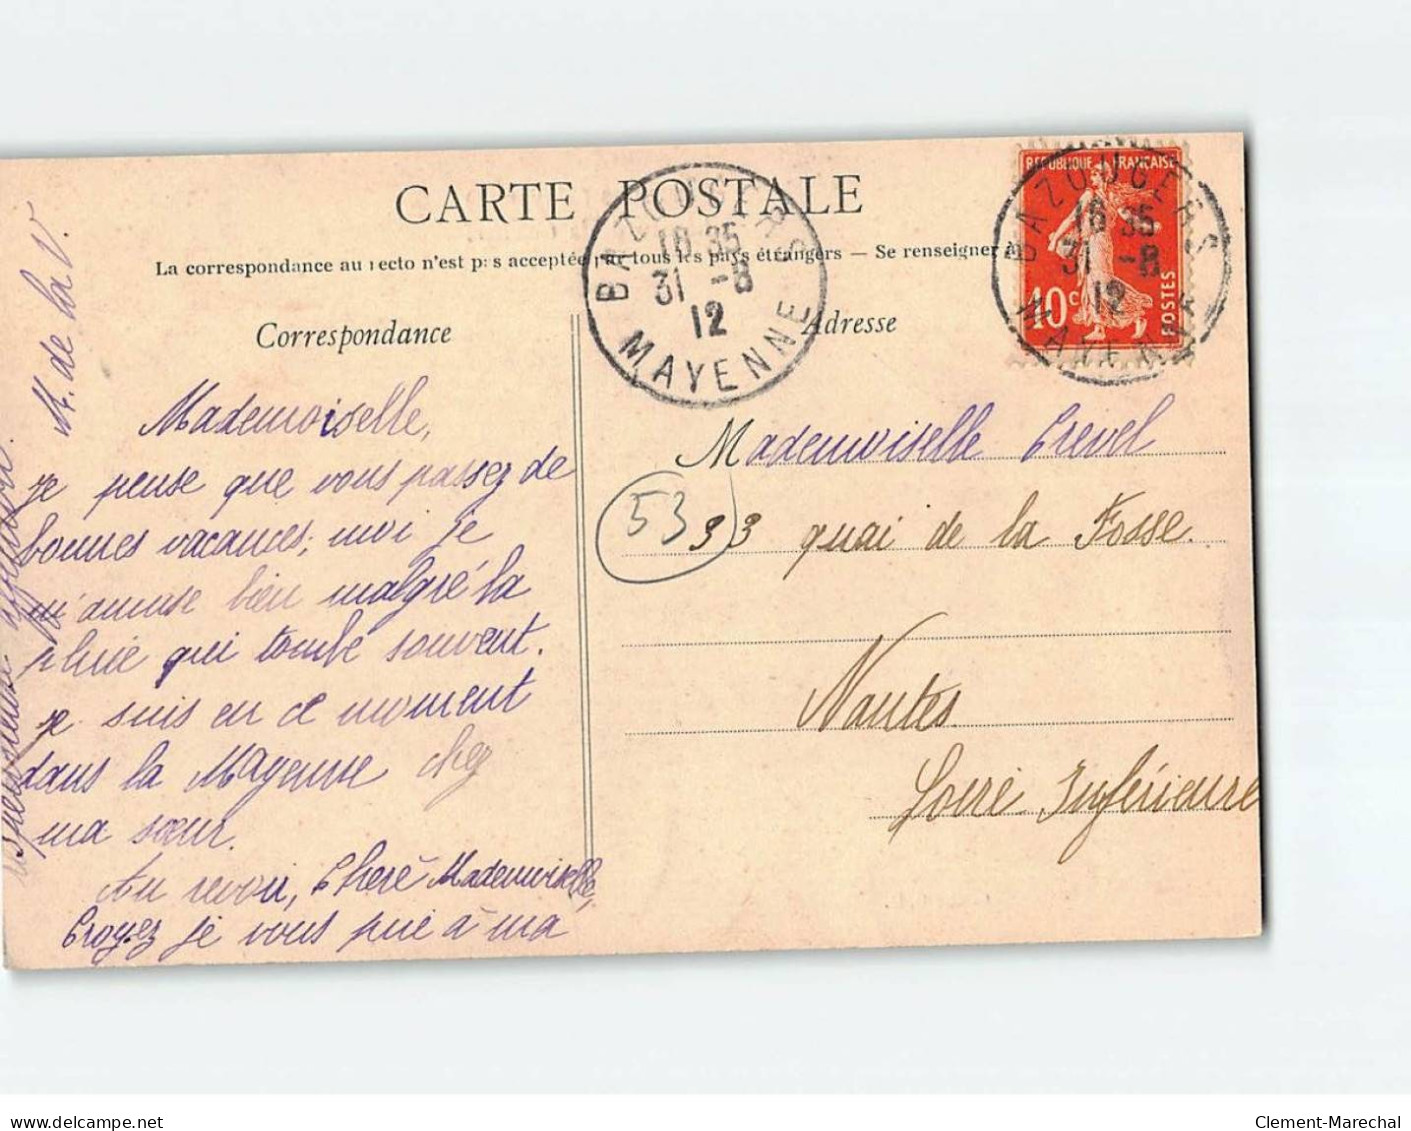 CARTE POSTALE
La correspondance au recto n'est pas acceptée par tous les pays étrangers — Se renseigner à
Correspondance
Adresse
REPUBLIQUE FRANÇAISE
10c
POSTES
BAZOUGERS
16 35
31 -8
12
MAYENNE
BAZOUGERS
16 35
31 -8
12
MAYENNE
Mademoiselle,
je pense que vous passez de
bonnes vacances; moi je
m'amuse bien malgré la
pluie qui tombe souvent.
je suis en ce moment
dans la Mayenne chez
ma sœur.
Au revoir, Chère Mademoiselle,
Croyez je vous prie à ma
M. de la V.
Mademoiselle Crevel
53
33 quai de la Fosse.
Nantes
Loire Inférieure
Clement-Marechal